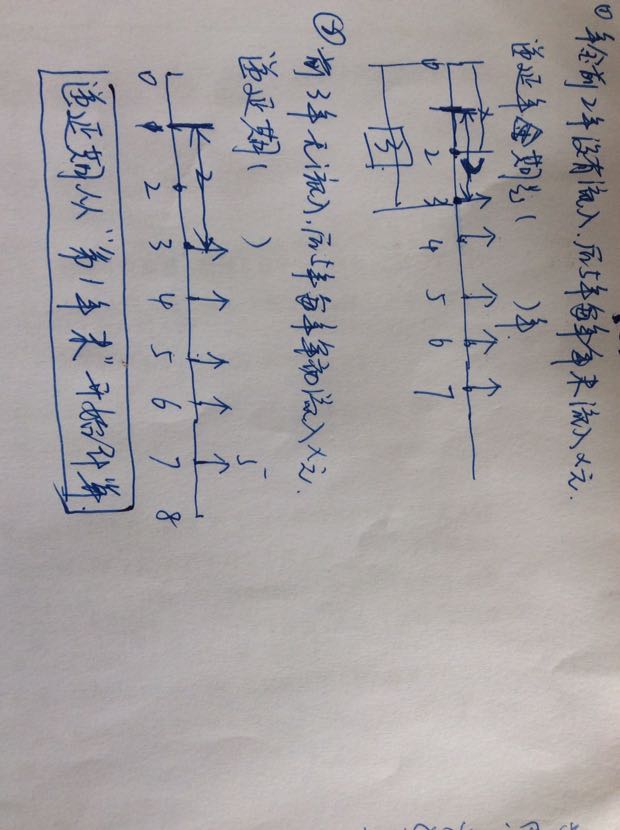 ① 年金前2年没有流入,后5年每年年末流入x元.
递延年金期为(    )年.
2
0 2 3 4 5 6 7
3
② 前3年无流入,后5年每年年初流入x元.
递延期(    )
2
5
0 1 2 3 4 5 6 7 8
递延期从“第1年末”开始计算.